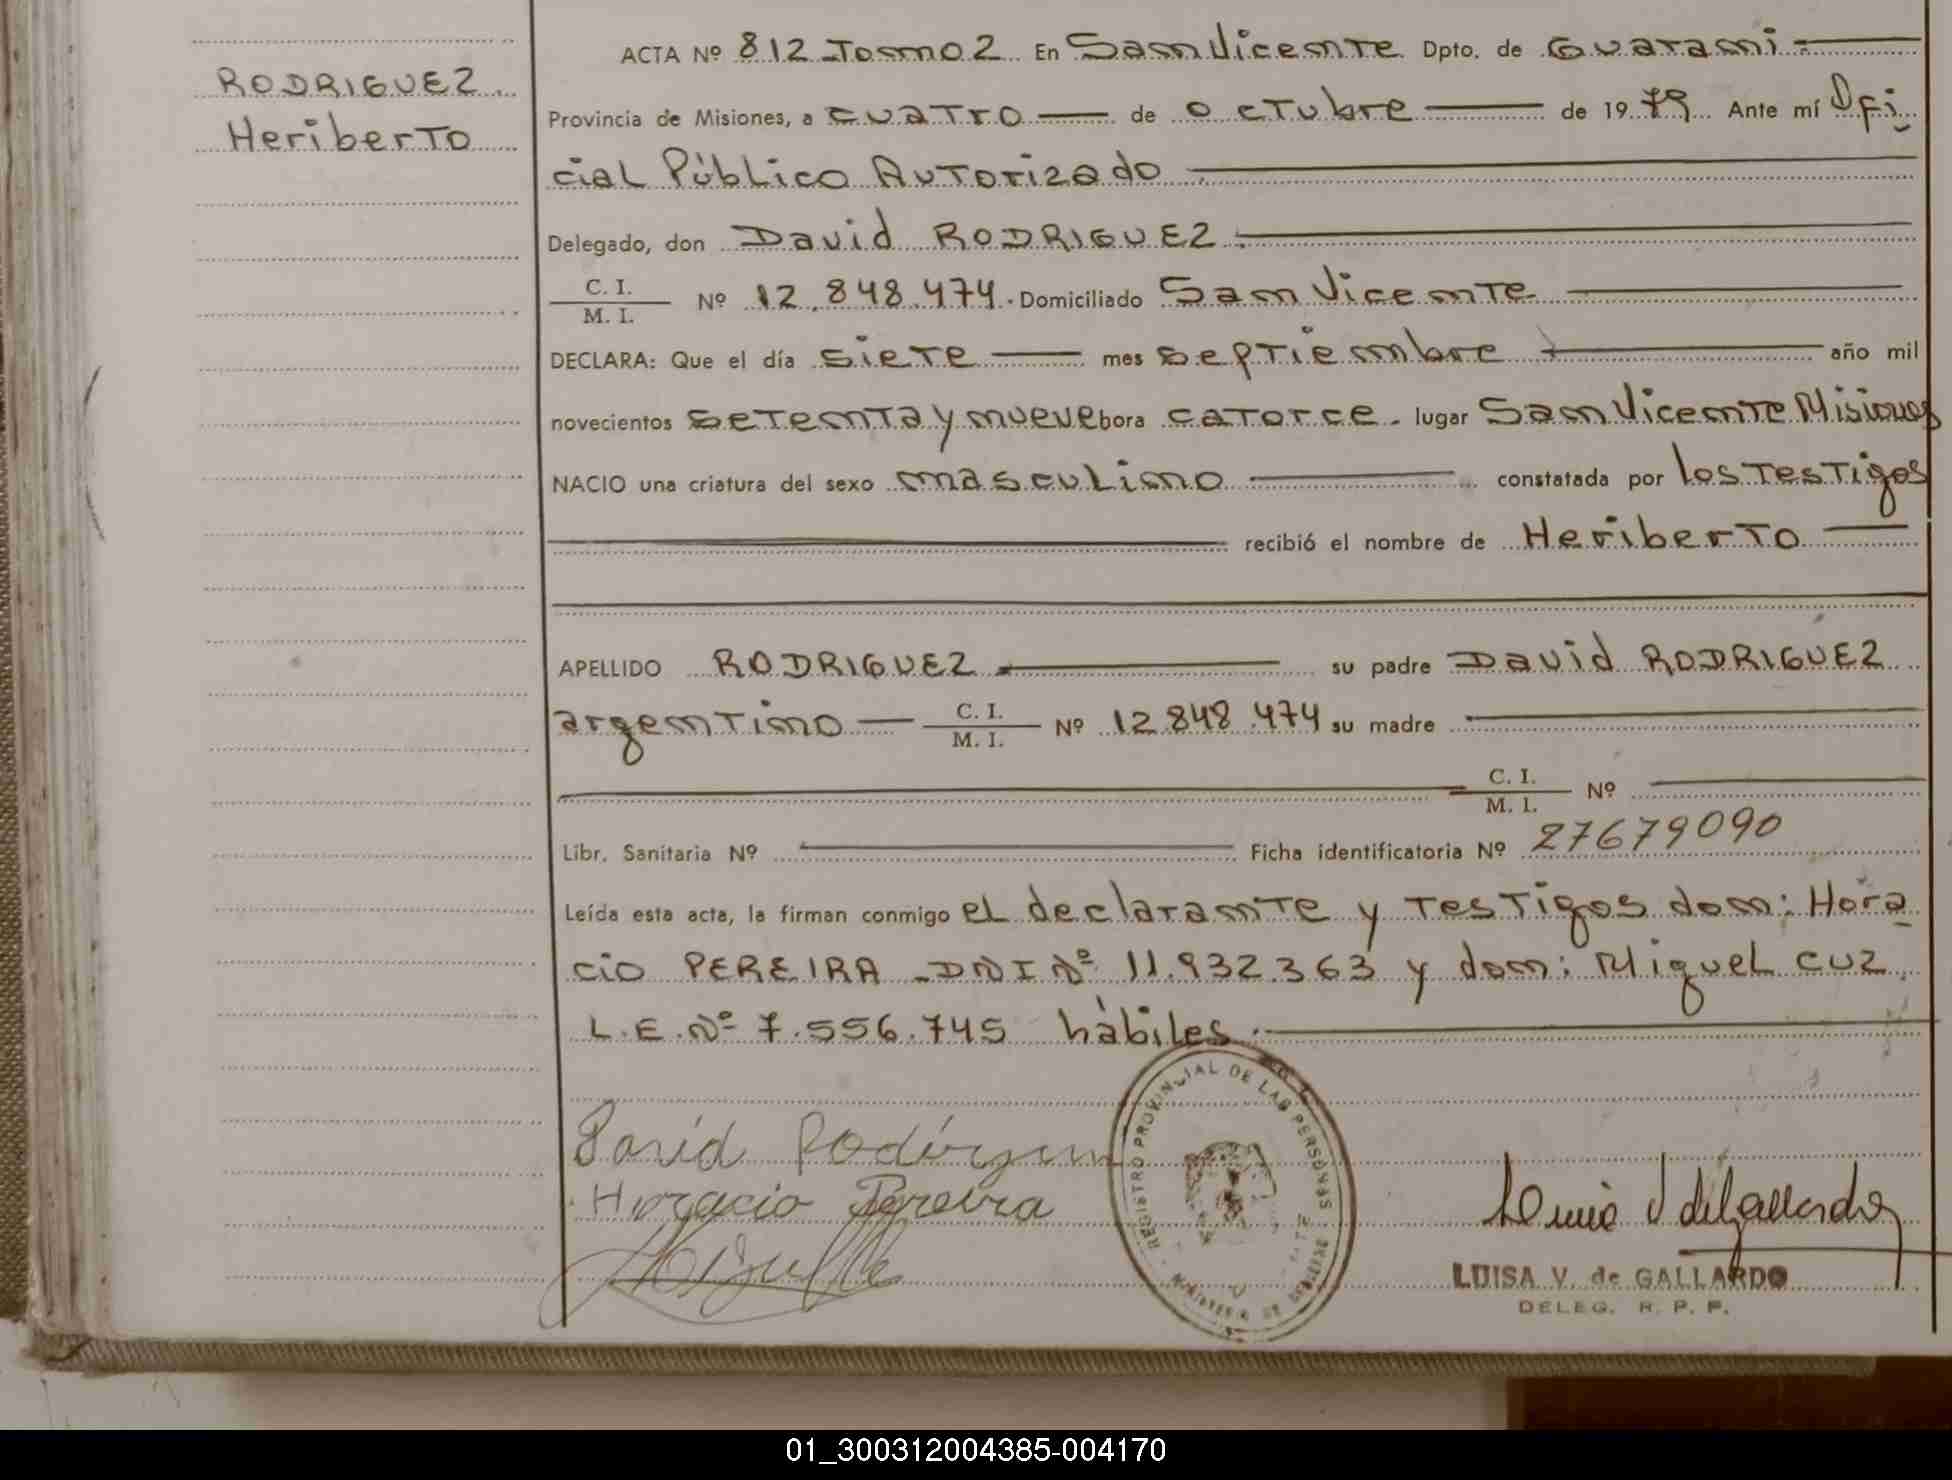 RODRIGUEZ
Heriberto
ACTA Nº 812 Tomo 2 En San Vicente Dpto. de Guarani
Provincia de Misiones, a cuatro de octubre de 1979 Ante mí Ofi
cial Público Autorizado
Delegado, don David RODRIGUEZ
C. I.
M. I. Nº 12.848.474. Domiciliado San Vicente
DECLARA: Que el día siete mes septiembre año mil
novecientos setenta y nueve hora catorce. lugar San Vicente Misiones
NACIO una criatura del sexo masculino constatada por los testigos
recibió el nombre de Heriberto
APELLIDO RODRIGUEZ su padre David RODRIGUEZ
argentino C. I.
M. I. Nº 12.848.474 su madre
C. I.
M. I. Nº
Libr. Sanitaria Nº Ficha identificatoria Nº 27679090
Leída esta acta, la firman conmigo el declarante y testigos don: Hora
cio PEREIRA - DNI Nº 11.932.363 y don: Miguel CUZ
L.E. Nº 7.556.745 hàbiles.
David
Horacio Pereira
REGISTRO PROVINCIAL DE LAS PERSONAS
MINISTERIO DE
LUISA V. de GALLARDO
DELEG. R. P. P.
01_300312004385-004170